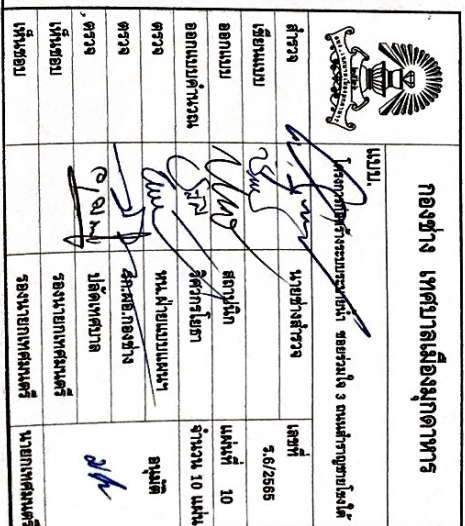 กองช่าง เทศบาลเมืองมุกดาหาร
แบบ.
โครงการก่อสร้างระบบระบายน้ำ ซอยร่วมใจ 3 ถนนสำราญชายโขงใต้
สำรวจ
นายช่างสำรวจ
เลขที่
ร.6/2565
เขียนแบบ
ออกแบบ
สถาปนิก
แผ่นที่ 10
ออกแบบคำนวณ
วิศวกรโยธา
จำนวน 10 แผ่น
ตรวจ
หน.ฝ่ายแบบแผนฯ
อนุมัติ
ตรวจ
รก.ผอ.กองช่าง
ตรวจ
ปลัดเทศบาล
เห็นชอบ
รองนายกเทศมนตรี
เห็นชอบ
รองนายกเทศมนตรี
นายกเทศมนตรี